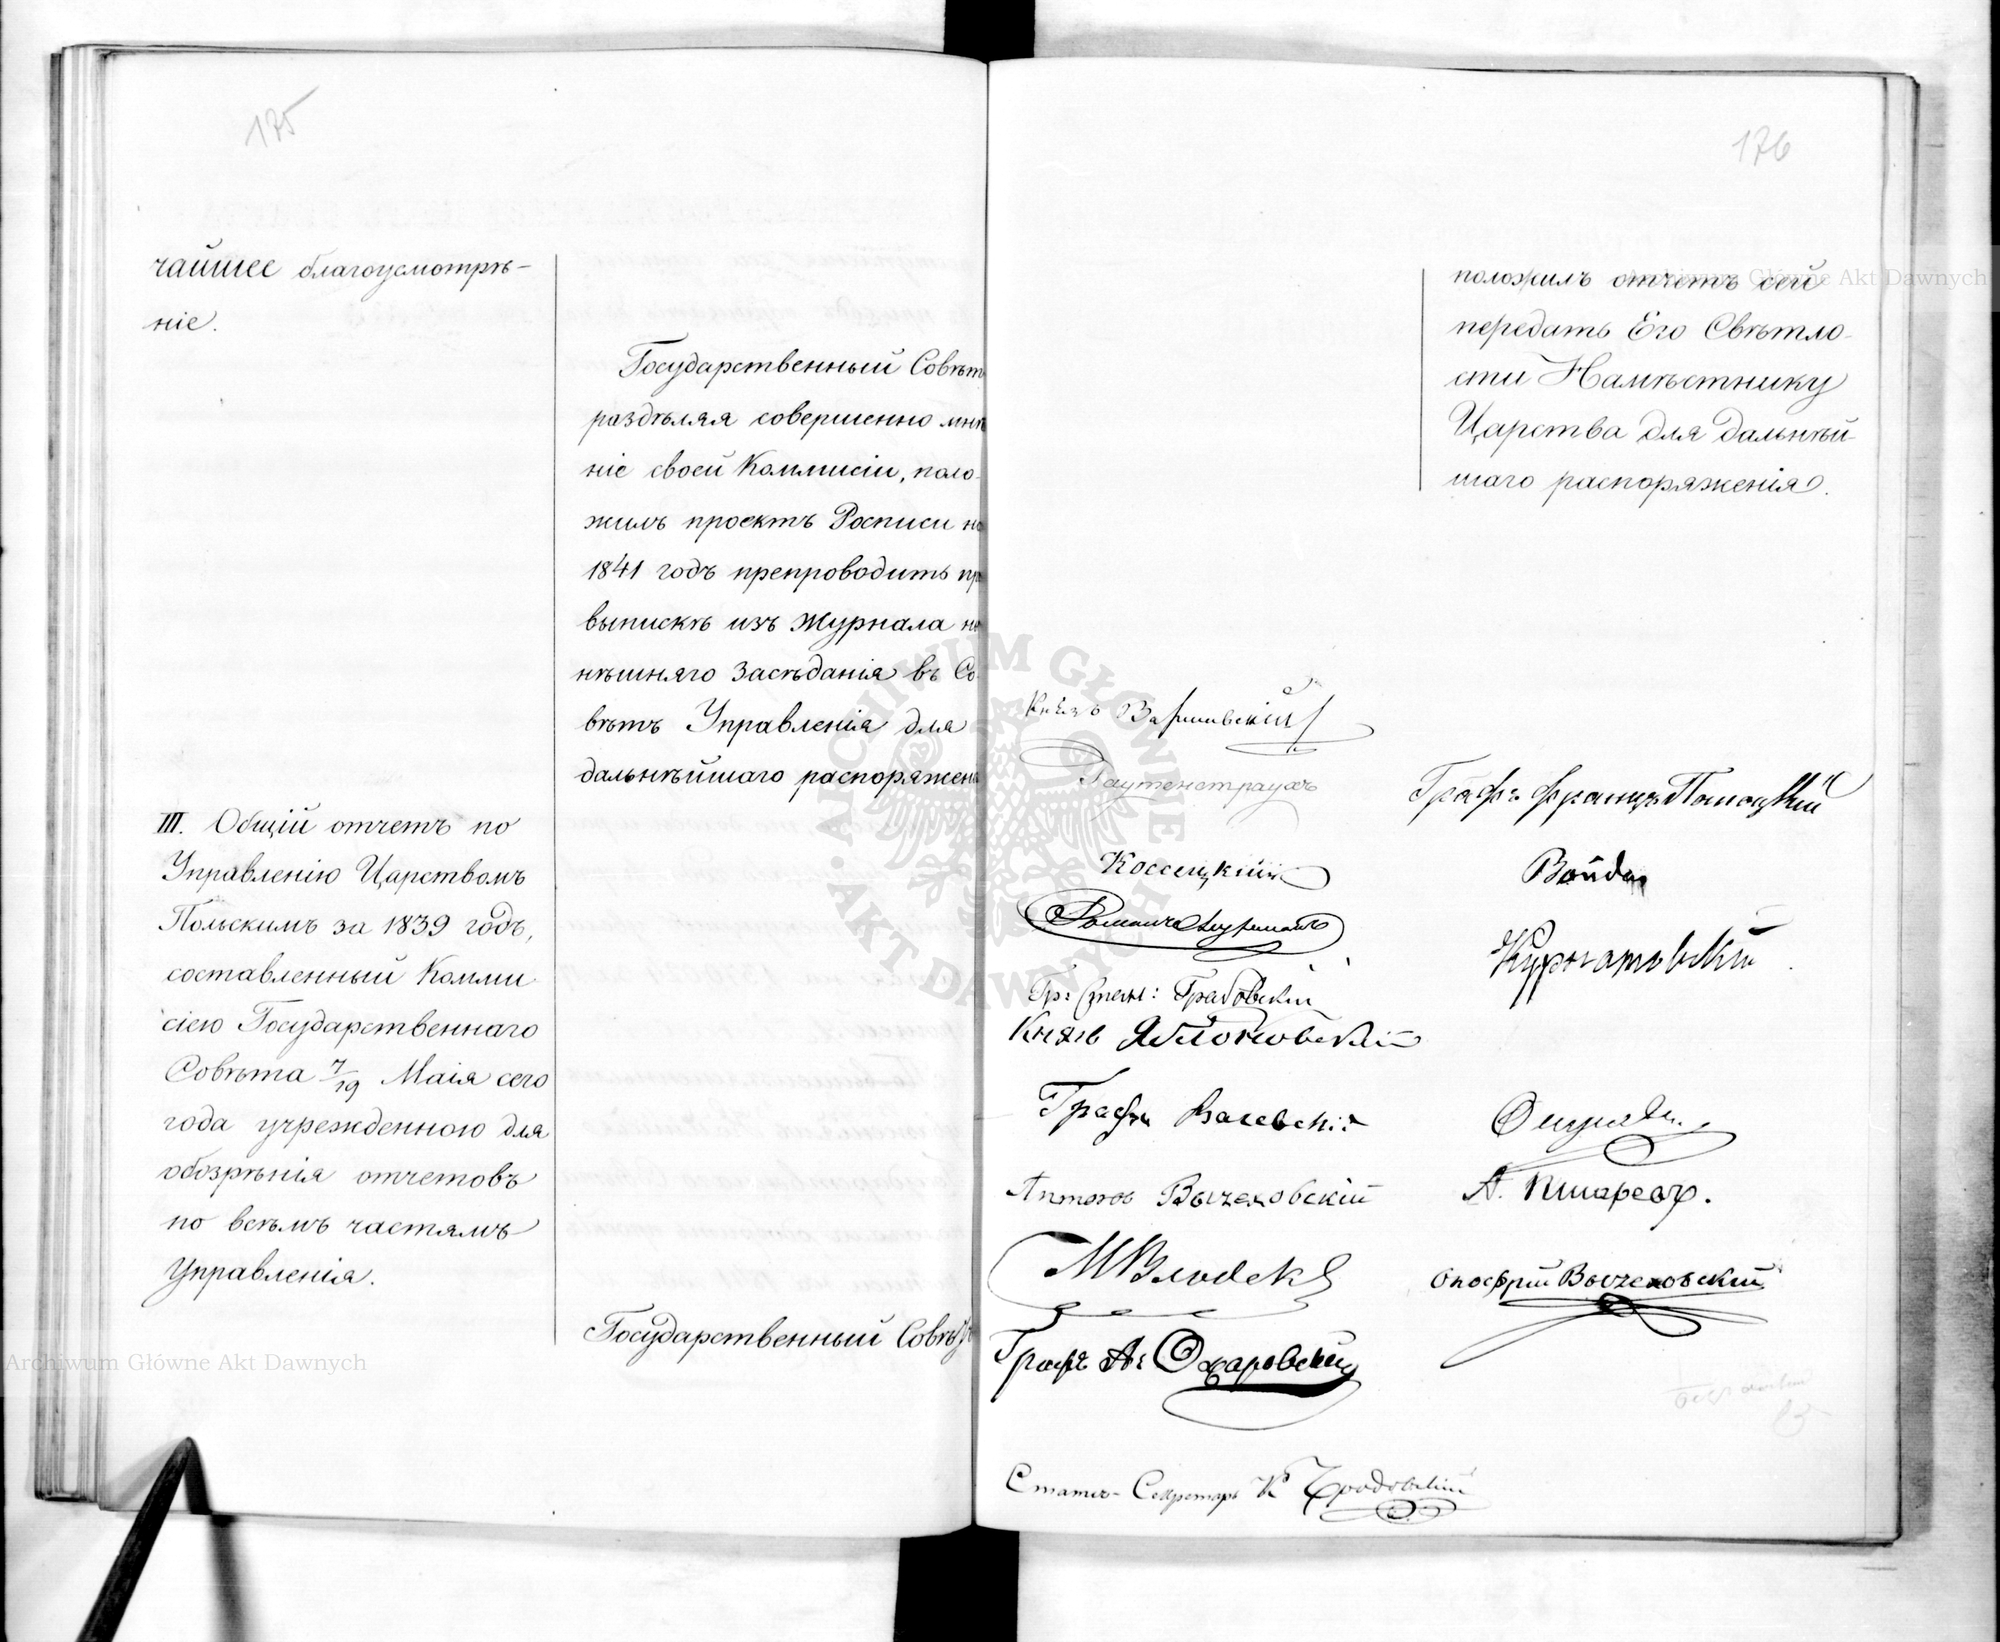 175
чайшее благоусмотрѣ-
ніе.
Государственный Совѣтъ
раздѣляя совершенно мнѣ
ніе своей Коммисіи, поло-
жилъ проектъ Росписи на
1841 годъ препроводить пр
выпискѣ изъ Журнала н
нѣшняго Засѣданія въ Со-
вѣтъ Управленія для
дальнѣйшаго распоряжен
III. Общій отчетъ по
Управленію Царствомъ
Польскимъ за 1839 годъ,
составленный Комми
сіею Государственнаго
Совѣта 7/19 Маія сего
года учрежденною для
обозрѣнія отчетовъ
по всѣмъ частямъ
Управленія.
Государственный Совѣтъ
176
положилъ отчетъ сей
передать Его Свѣтло-
сти Намѣстнику
Царства для дальнѣй-
шаго распоряженія.
Князь Варшавскій
Раутенстраухъ
Графъ Францъ Потоцкій
Коссецкій
Войда
Курнатовскій
Гр: Стан: Грабовскій
Князь Яблоновскій
Графъ Валевскій
Антонъ Вычеховскій
М Влодекъ
Онофрій Вычеховскій
Графъ А: Ожаровскій
Статсъ-Секретарь
Archiwum Główne Akt Dawnych
Archiwum Główne Akt Dawnych
ARCHIWUM GŁÓWNE AKT DAWNYCH